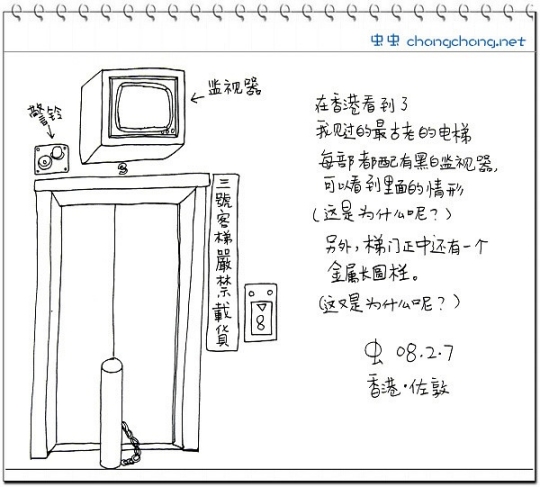 虫虫 chongchong.net
监视器
警铃
3
三號客梯嚴禁載貨
8
在香港看到了
我见过的最古老的电梯
每部都配有黑白监视器,
可以看到里面的情形
(这是为什么呢?)
另外,梯门正中还有一个
金属长圆栏。
(这又是为什么呢?)
虫 08.2.7
香港·佐敦